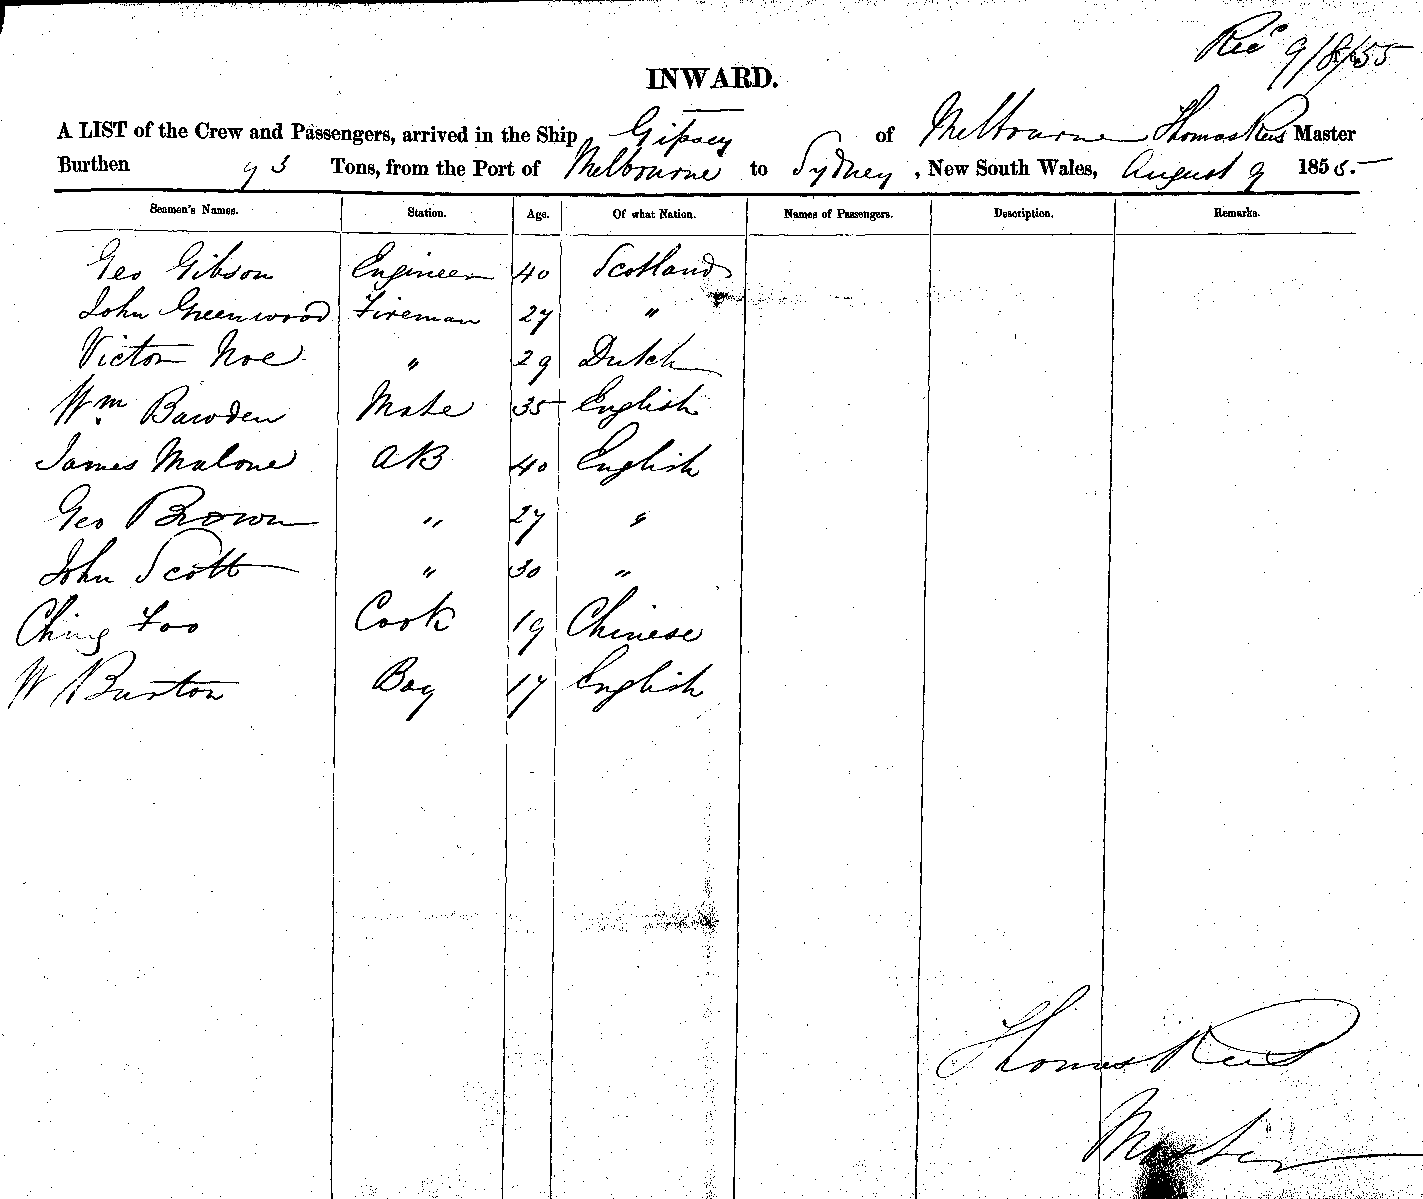 Recd 9/8/55
INWARD.
A LIST of the Crew and Passengers, arrived in the Ship Gipsey of Melbourne Thomas Reid Master
Burthen 93 Tons, from the Port of Melbourne to Sydney, New South Wales, August 9 1855.
Seamen's Names. Station. Age. Of what Nation. Names of Passengers. Description. Remarks.
Geo Gibson Engineer 40 Scotland
John Greenwood Fireman 27 "
Victor Noe " 29 Dutch
Wm Bawden Mate 35 English
James Malone AB 40 English
Geo Brown " 27 "
John Scott " 30 "
Ching Foo Cook 19 Chinese
W Burton Boy 17 English
Thomas Reid
Master